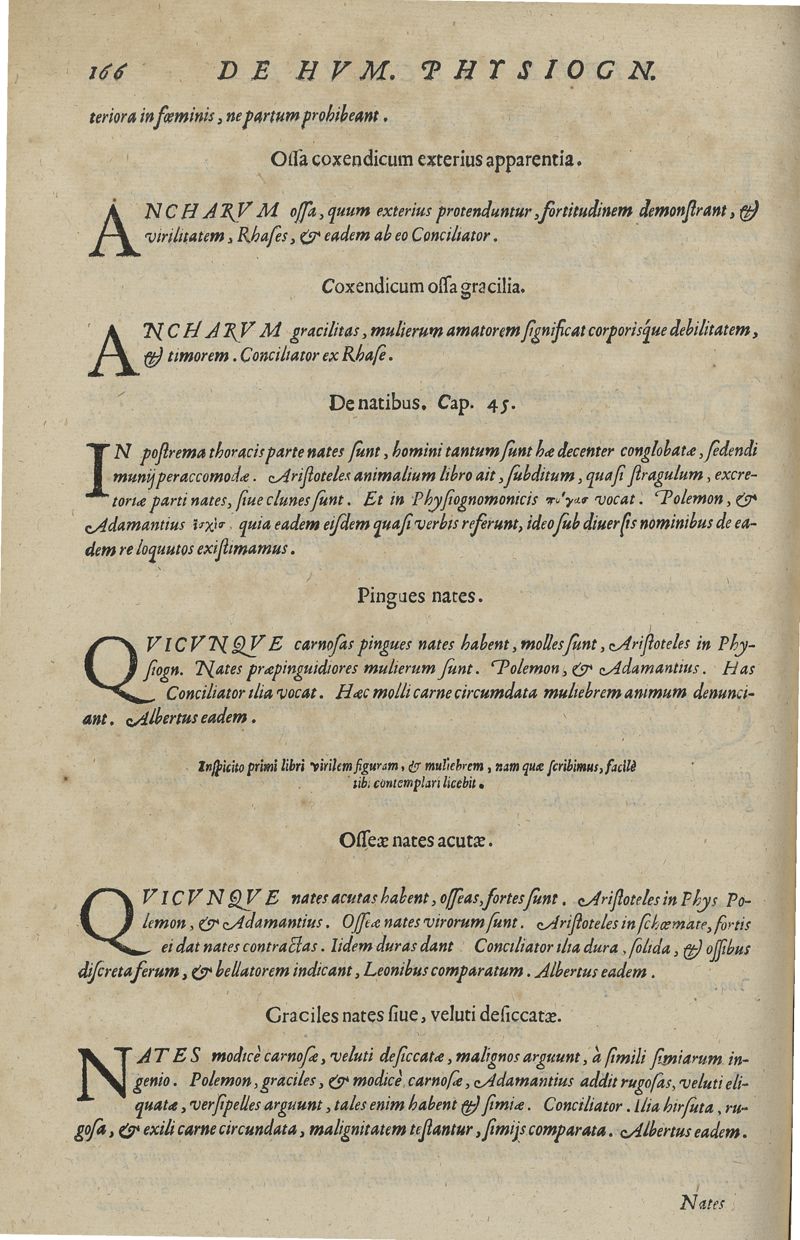 166 DE HVM. PHYSIOGN.
teriora in fœminis, ne partum prohibeant.
Oſſa coxendicum exterius apparentia.
ANCHARVM oſſa, quum exterius protenduntur, fortitudinem demonſtrant, &
virilitatem, Rhaſes, & eadem ab eo Conciliator.
Coxendicum oſſa gracilia.
ANCHARVM gracilitas, mulierum amatorem ſignificat corporisq́ue debilitatem,
& timorem. Conciliator ex Rhaſe.
De natibus. Cap. 45.
IN poſtrema thoracis parte nates ſunt, homini tantum ſunt hæ decenter conglobatæ, ſedendi
munij peraccomodæ. Ariſtoteles animalium libro ait, ſubditum, quaſi ſtragulum, excre-
toriæ parti nates, ſiue clunes ſunt. Et in Phyſiognomonicis vocat. Polemon, &
Adamantius quia eadem eiſdem quaſi verbis referunt, ideo ſub diuerſis nominibus de ea-
dem re loquutos exiſtimamus.
Pingues nates.
QVICVNQVE carnoſas pingues nates habent, molles ſunt, Ariſtoteles in Phy-
ſiogn. Nates præpinguidiores mulierum ſunt. Polemon, & Adamantius. Has
Conciliator ilia vocat. Hæc molli carne circumdata muliebrem animum denunci-
ant. Albertus eadem.
Inſpicito primi libri virilem figuram, & muliebrem, nam quæ ſcribimus, facilè
tibi contemplari licebit.
Oſſeæ nates acutæ.
QVICVNQVE nates acutas habent, oſſeas, fortes ſunt. Ariſtoteles in Phys Po-
lemon, & Adamantius. Oſſeæ nates virorum ſunt. Ariſtoteles in ſchœmate, fortis
ei dat nates contractas. Iidem duras dant Conciliator ilia dura, ſolida, & oſſibus
diſcreta ferum, & bellatorem indicant, Leonibus comparatum. Albertus eadem.
Graciles nates ſiue, veluti deſiccatæ.
NATES modicè carnoſæ, veluti deſiccatæ, malignos arguunt, à ſimili ſimiarum in-
genio. Polemon, graciles, & modicè carnoſæ, Adamantius addit rugoſas, veluti eli-
quatæ, verſipelles arguunt, tales enim habent & ſimiæ. Conciliator. Ilia hirſuta, ru-
goſa, & exili carne circundata, malignitatem teſtantur, ſimijs comparata. Albertus eadem.
Nates